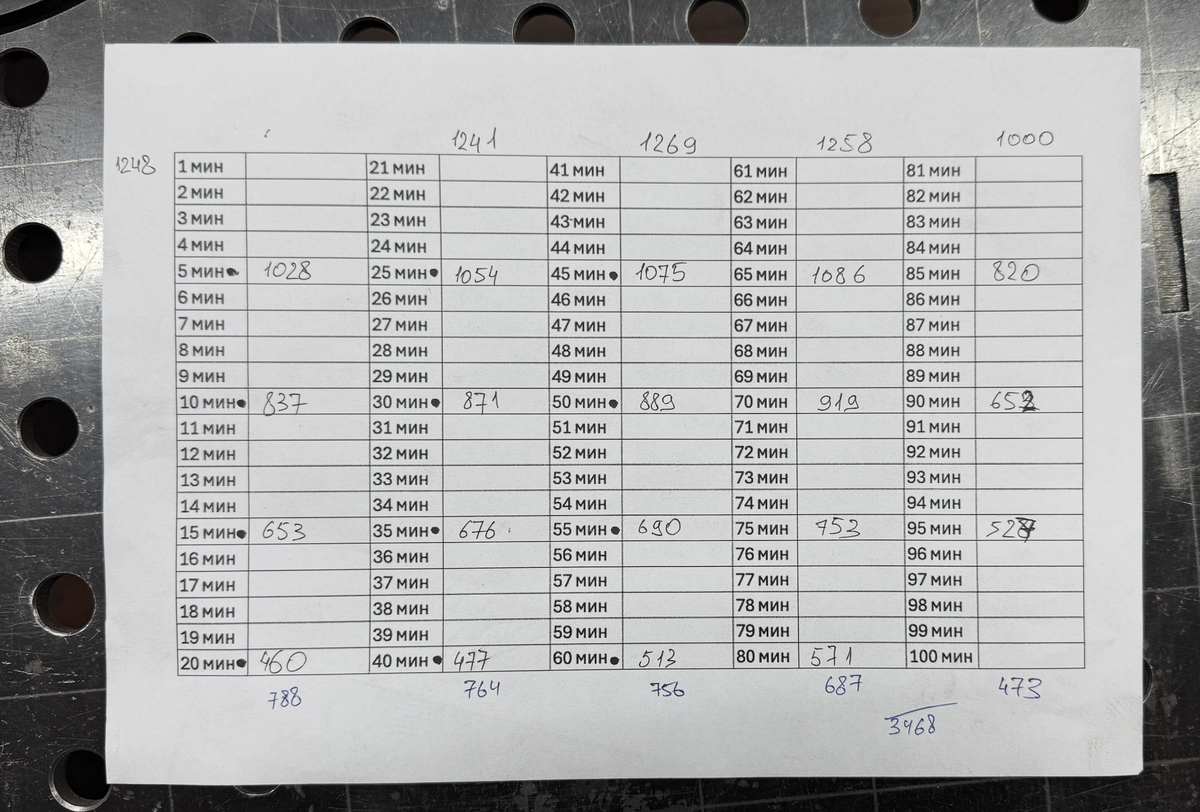 1241 1269 1258 1000
1248 1 мин 21 мин 41 мин 61 мин 81 мин
2 мин 22 мин 42 мин 62 мин 82 мин
3 мин 23 мин 43 мин 63 мин 83 мин
4 мин 24 мин 44 мин 64 мин 84 мин
5 мин 1028 25 мин 1054 45 мин 1075 65 мин 1086 85 мин 820
6 мин 26 мин 46 мин 66 мин 86 мин
7 мин 27 мин 47 мин 67 мин 87 мин
8 мин 28 мин 48 мин 68 мин 88 мин
9 мин 29 мин 49 мин 69 мин 89 мин
10 мин 837 30 мин 871 50 мин 889 70 мин 919 90 мин 652
11 мин 31 мин 51 мин 71 мин 91 мин
12 мин 32 мин 52 мин 72 мин 92 мин
13 мин 33 мин 53 мин 73 мин 93 мин
14 мин 34 мин 54 мин 74 мин 94 мин
15 мин 653 35 мин 676 55 мин 690 75 мин 753 95 мин 527
16 мин 36 мин 56 мин 76 мин 96 мин
17 мин 37 мин 57 мин 77 мин 97 мин
18 мин 38 мин 58 мин 78 мин 98 мин
19 мин 39 мин 59 мин 79 мин 99 мин
20 мин 460 40 мин 477 60 мин 513 80 мин 571 100 мин
788 764 756 687 473
3468